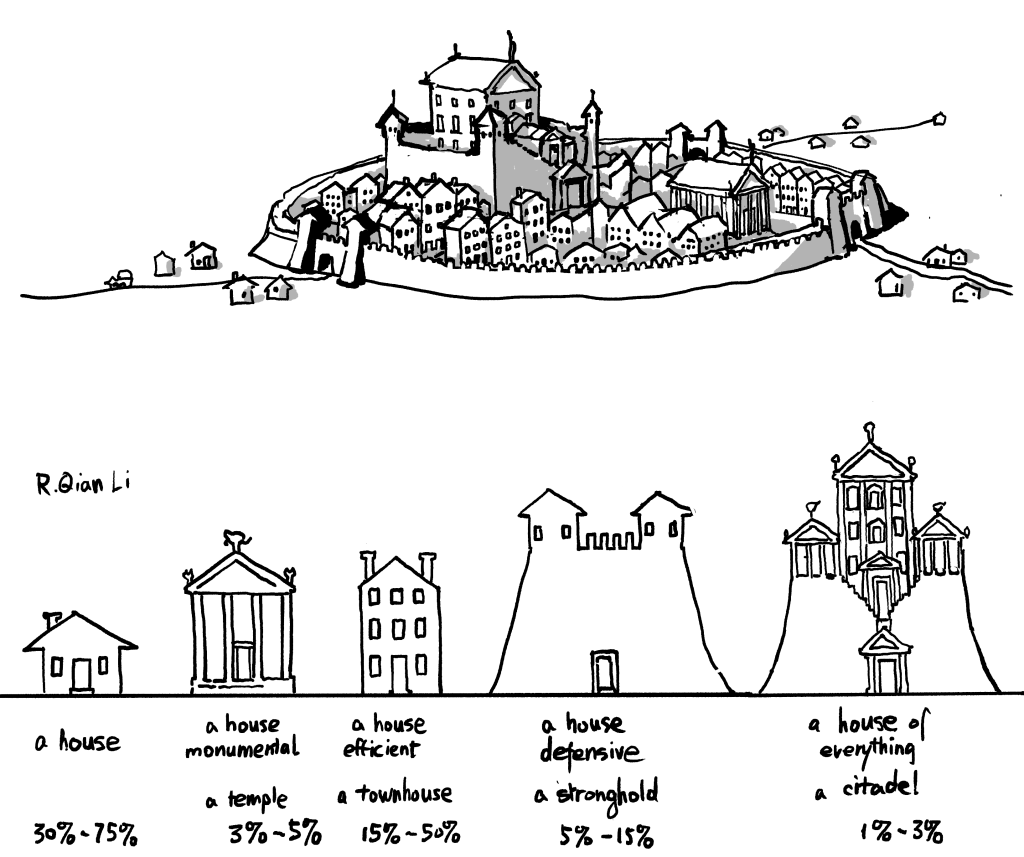 R.Qian Li
a house
30%~75%
a house
monumental
a temple
3%~5%
a house
efficient
a townhouse
15%~50%
a house
defensive
a stronghold
5%~15%
a house of
everything
a citadel
1%~3%